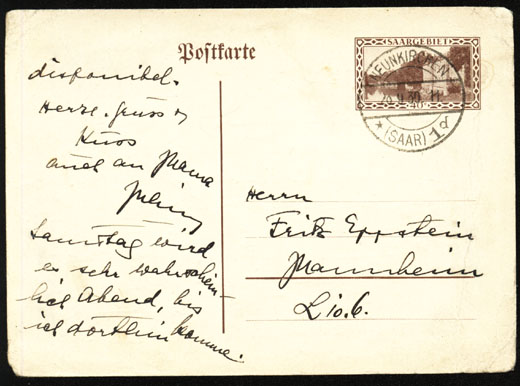 Postkarte
SAARGEBIET
NEUNKIRCHEN
(SAAR) 1d
disponibel.
Herzl. Gruss &
Kuss
auch an Mama
Samstag wird
es sehr wahrschein-
lich Abend, bis
ich dorthin komme.
Herrn
Fritz Eppstein
Mannheim
L 10.6.